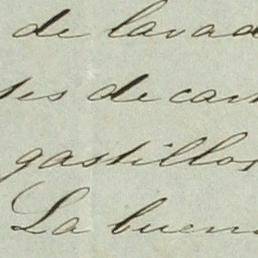 de lavad
tes de cart
gastillos
La buen